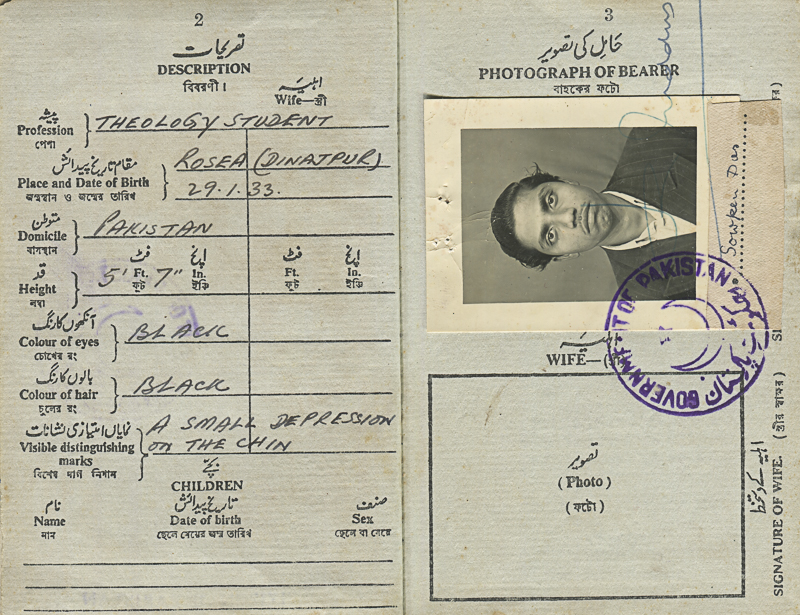 2
تصریحات
DESCRIPTION
বিবরণী।
اہلیہ
Wife—স্ত্রী
پیشہ
Profession
পেশা
THEOLOGY STUDENT
مقام تاریخ پیدائش
Place and Date of Birth
জন্মস্থান ও জন্মের তারিখ
ROSEA (DINAJPUR)
29.1.33.
متوطن
Domicile
বাসস্থান
PAKISTAN
قد
Height
লম্বা
5' فٹ 7" انچ فٹ انچ
Ft. In. Ft. In.
ফুট ইঞ্চি ফুট ইঞ্চি
آنکھوں کا رنگ
Colour of eyes
চোখের রং
BLACK
بالوں کا رنگ
Colour of hair
চুলের রং
BLACK
نمایاں امتیازی نشانات
Visible distinguishing
marks
বিশেষ দাগ নিশান
A SMALL DEPRESSION
ON THE CHIN
بچّے
CHILDREN
نام تاریخ پیدائش صنف
Name Date of birth Sex
নাম ছেলে মেয়ের জন্ম তারিখ ছেলে বা মেয়ে
3
حامل کی تصویر
PHOTOGRAPH OF BEARER
বাহকের ফটো
Sowken Das
GOVERNMENT OF PAKISTAN
WIFE—
تصویر
(Photo)
(ফটো)
اہلیہ کے دستخط
SIGNATURE OF WIFE. (স্ত্রীর স্বাক্ষর)